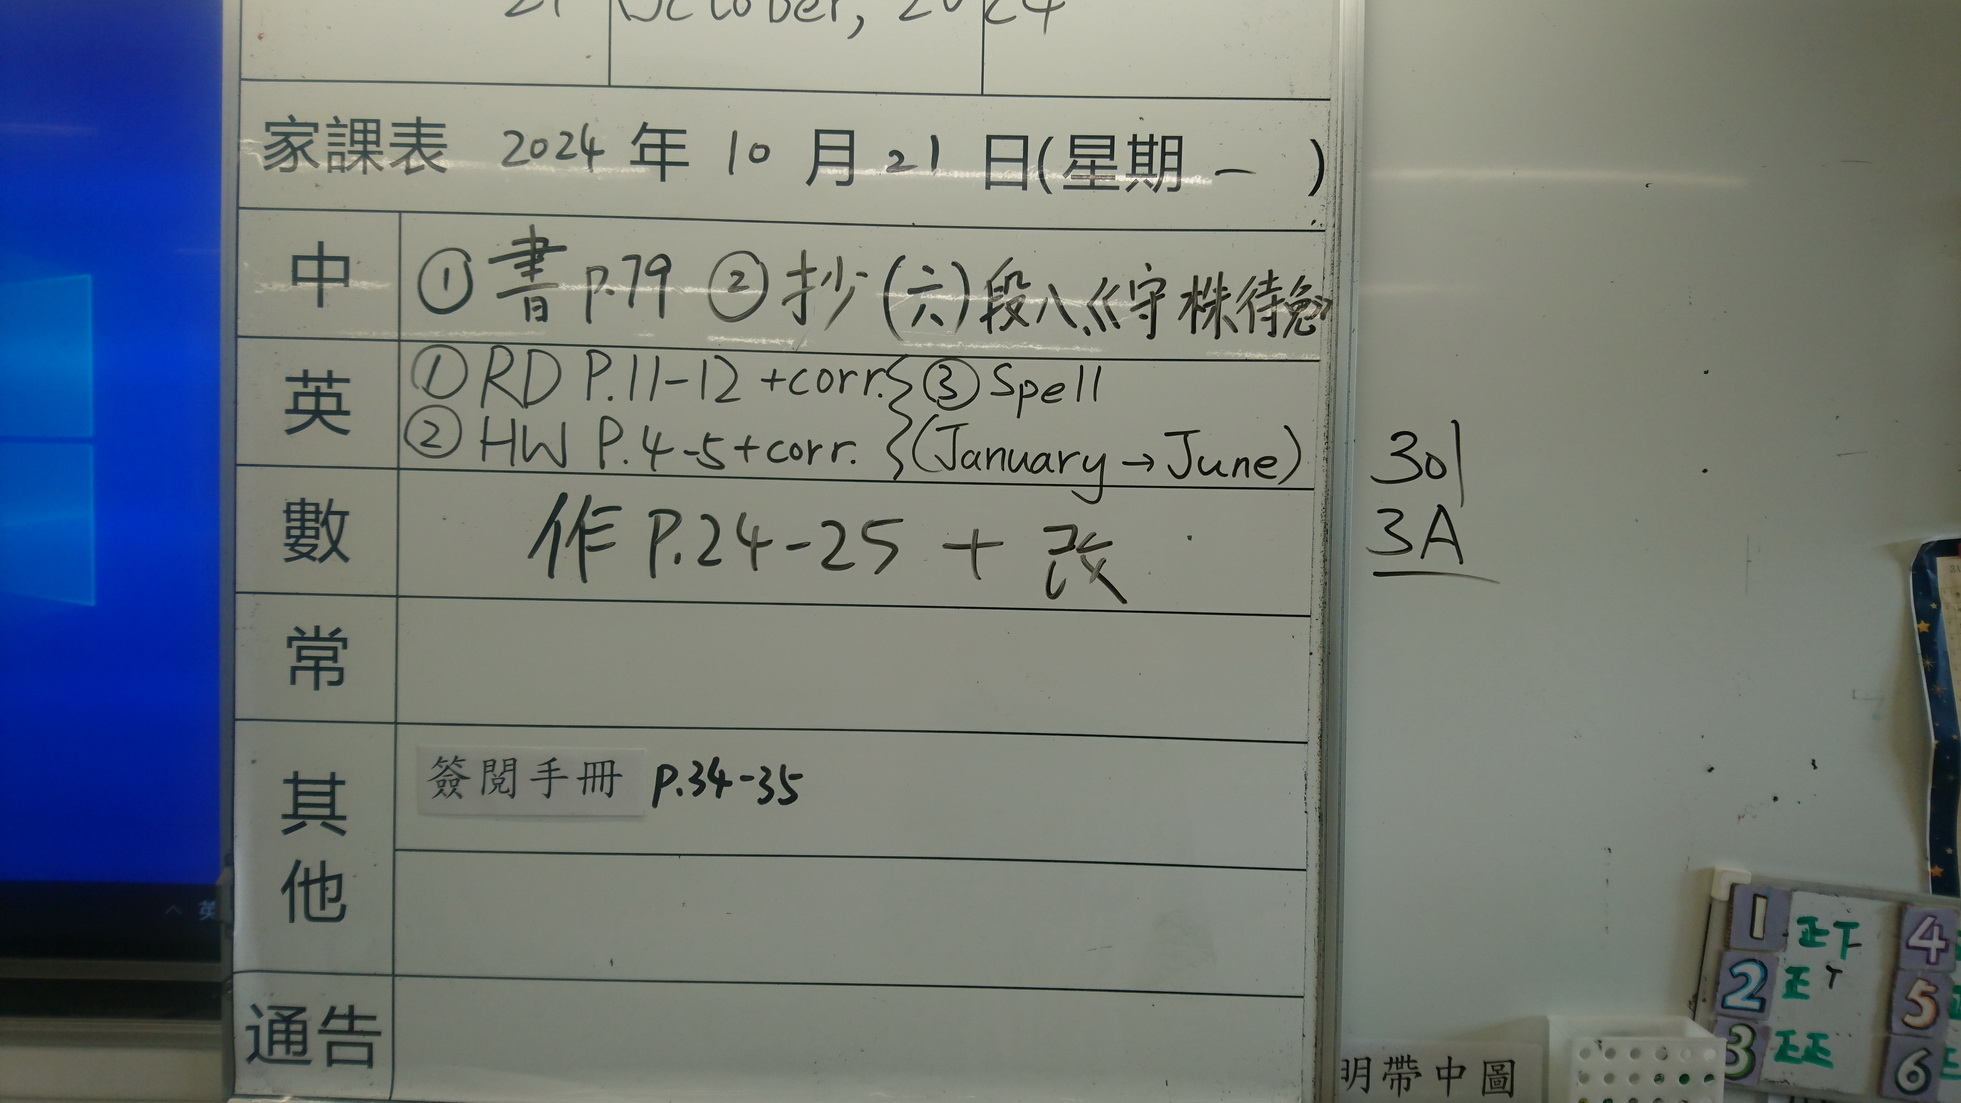 21 October, 2024
家課表 2024 年 10 月 21 日(星期 一 )
中 ① 書 p.79 ② 抄(六)段八《守株待兔》
英 ① RD P.11-12 +corr. ③ Spell
② HW P.4-5+corr. (January → June)
301
3A
數 作 P.24-25 + 改
常
其他 簽閱手冊 p.34-35
通告
明帶中圖
1 正下 4
2 正丅 5
3 正正 6
英